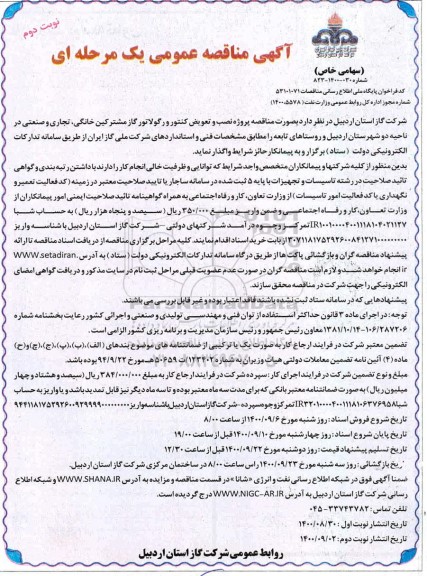 نوبت دوم
آگهی مناقصه عمومی یک مرحله ای
(سهامی خاص)
شماره ۰۳۰-۱۴۰۰-۸۲۳
کد فراخوان پایگاه ملی اطلاع رسانی مناقصات ۵۳۱۰۱۰۷۱
شماره مجوز اداره کل روابط عمومی وزارت نفت: ۱۴۰۰.۵۵۷۸
شرکت گاز استان اردبیل در نظر دارد بصورت مناقصه پروژه نصب و تعویض کنتور و رگولاتور گاز مشترکین خانگی، تجاری و صنعتی در
ناحیه دو شهرستان اردبیل و روستاهای تابعه را مطابق مشخصات فنی و استانداردهای شرکت ملی گاز ایران از طریق سامانه تدارکات
الکترونیکی دولت (ستاد) برگزار و به پیمانکار حائز شرایط واگذار نماید.
بدین منظور از کلیه شرکتها و پیمانکاران متخصص واجد شرایط که توانایی و ظرفیت خالی انجام کار را دارند با داشتن رتبه بندی و گواهی
تائید صلاحیت در رشته تاسیسات و تجهیزات با پایه ۵ ثبت شده در سامانه ساجار یا تایید صلاحیت معتبر در زمینه (کد فعالیت تعمیر و
نگهداری یا کد فعالیت امور تاسیسات) از وزارت تعاون، کار و رفاه اجتماعی به همراه گواهینامه تائید صلاحیت ایمنی امور پیمانکاران از
وزارت تعاون، کار و رفاه اجتماعی و ضمن واریز مبلغ ۳۵۰/۰۰۰ ریال (سیصد و پنجاه هزار ریال) به حساب شبا
تمرکز وجوه درآمد شرکتهای دولتی - شرکت گاز استان اردبیل با شناسه واریز
از بابت خرید اسناد اقدام نمایند. کلیه مراحل برگزاری مناقصه از دریافت اسناد مناقصه تا ارائه
پیشنهاد مناقصه گران و بازگشائی پاکت ها از طریق درگاه سامانه تدارکات الکترونیکی دولت (ستاد) به آدرس WWW.setadiran.
ir انجام خواهد شد و لازم است مناقصه گران در صورت عدم عضویت قبلی مراحل ثبت نام در سایت مذکور و دریافت گواهی امضای
الکترونیکی را جهت شرکت در مناقصه محقق سازند.
پیشنهادهایی که در سامانه ستاد ثبت نشده باشند فاقد اعتبار بوده و غیر قابل بررسی می باشند.
توجه: در اجرای ماده ۳ قانون حداکثر استفاده از توان فنی و مهندسی تولیدی و صنعتی و اجرائی کشور رعایت بخشنامه شماره
معاون رئیس جمهور و رئیس سازمان مدیریت و برنامه ریزی کشور الزامی است.
تضمین معتبر شرکت در فرایند ارجاع کار به صورت یک یا ترکیبی از ضمانتنامه های موضوع بندهای (الف)،(ب)،(پ)،(ج)،(چ)و(ح)
ماده (۴) آئین نامه تضمین معاملات دولتی هیات وزیران به شماره ۱۲۳۴۰۲/ت ۵۰۶۵۹ هـ مورخ ۹۴/۹/۲۲ بوده باشد.
مبلغ و نوع تضمین شرکت در فرایند اجرای کار: سپرده شرکت در فرایند ارجاع کار به مبلغ ۳۸۴/۰۰۰/۰۰۰ ریال (سیصد و هشتاد و چهار
میلیون ریال) به صورت ضمانتنامه معتبر بانکی که برای مدت سه ماه معتبر بوده و تا سه ماه دیگر نیز قابل تمدید باشد و یا واریز به حساب
تمرکز وجوه سپرده - شرکت گاز استان اردبیل با شناسه واریز
تاریخ شروع فروش اسناد: روز شنبه مورخ ۱۴۰۰/۰۹/۶ از ساعت ۸/۰۰
تاریخ پایان شروع اسناد: روز چهارشنبه مورخ ۱۴۰۰/۰۹/۱۰ قبل از ساعت ۱۹/۰۰
تاریخ تسلیم پیشنهاد قیمت: روز دوشنبه مورخ ۱۴۰۰/۰۹/۲۲ قبل از ساعت ۱۲/۳۰
تاریخ بازگشائی: روز سه شنبه مورخ ۱۴۰۰/۰۹/۲۳ راس ساعت ۸/۰۰ در ساختمان مرکزی شرکت گاز استان اردبیل.
ضمنا آگهی فوق در شبکه اطلاع رسانی نفت و انرژی «شانا» در قسمت مناقصه و مزایده به آدرس WWW.SHANA.IR و شبکه اطلاع
رسانی شرکت گاز استان اردبیل به آدرس WWW.NIGC-AR.IR درج گردیده است.
تلفن تماس: ۳۳۷۴۳۷۸۲-۰۴۵
تاریخ انتشار نوبت اول: ۱۴۰۰/۰۸/۳۰
تاریخ انتشار نوبت دوم: ۱۴۰۰/۰۹/۰۲
روابط عمومی شرکت گاز استان اردبیل